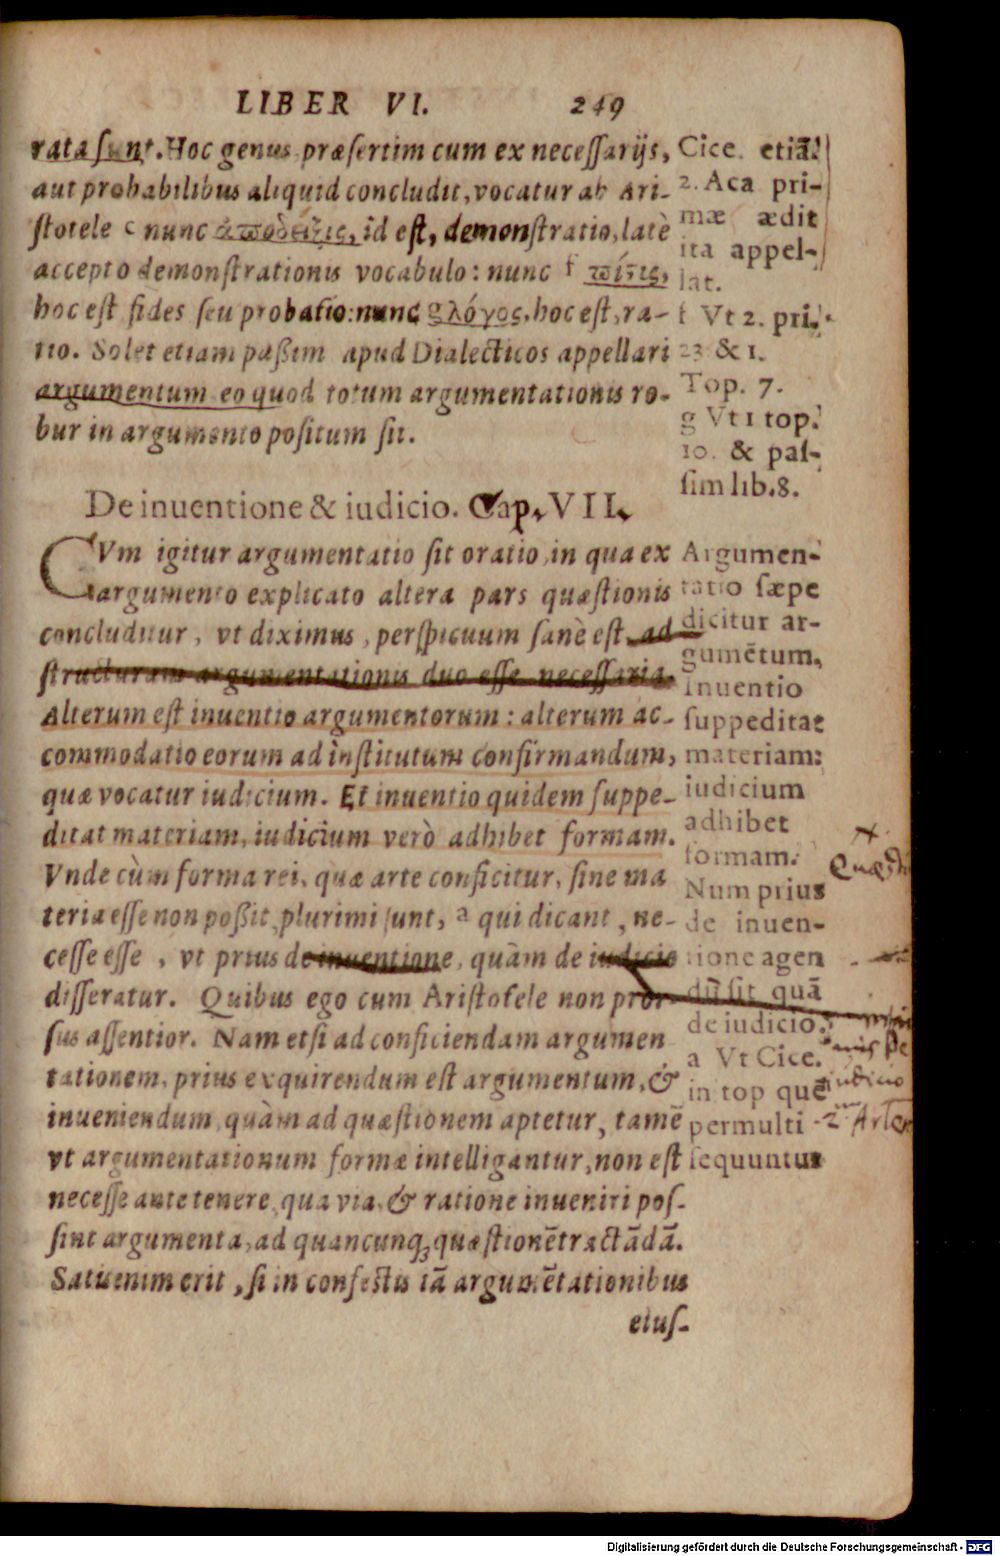 LIBER VI. 249
rata sunt. Hoc genus præsertim cum ex necessarijs,
aut probabilibus aliquid concludit, vocatur ab Ari-
stotele c nunc ἀπόδειξις, id est, demonstratio, latè
accepto demonstrationis vocabulo: nunc f πίστις,
hoc est fides seu probatio: nunc g λόγος, hoc est, ra-
tio. Solet etiam paßim apud Dialecticos appellari
argumentum eo quod totum argumentationis ro-
bur in argumento positum sit.
Cice. etiã.
2. Aca pri-
mæ ædit
ita appel-
lat.
f Vt 2. pri.
23 & 1.
Top. 7.
g Vt 1 top.
10. & pas-
sim lib. 8.
De inuentione & iudicio. Cap. VII.
CVm igitur argumentatio sit oratio, in qua ex
argumento explicato altera pars quæstionis
concluditur, vt diximus, perspicuum sanè est, ad
structuram argumentationis duo esse necessaria.
Alterum est inuentio argumentorum: alterum ac-
commodatio eorum ad institutum confirmandum,
quæ vocatur iudicium. Et inuentio quidem suppe-
ditat materiam, iudicium verò adhibet formam.
Vnde cùm forma rei, quæ arte conficitur, sine ma
teria esse non poßit, plurimi sunt, a qui dicant, ne-
cesse esse, vt prius de inuentione, quàm de iudicio
disseratur. Quibus ego cum Aristotele non pror-
sus assentior. Nam etsi ad conficiendam argumen
tationem, prius exquirendum est argumentum, &
inueniendum, quàm ad quæstionem aptetur, tamẽ
vt argumentationum formæ intelligantur, non est
necesse ante tenere, qua via, & ratione inueniri pos-
sint argumenta, ad quancunq; quæstionẽ tractãdã.
Satis enim erit, si in confectis iã argumẽtationibus
eius-
Argumen-
tatio sæpe
dicitur ar-
gumẽtum.
Inuentio
suppeditat
materiam:
iudicium
adhibet
formam.
Num prius
de inuen-
tione agen
dũ sit quã
de iudicio.
a Vt Cice.
in top quẽ
permulti
sequuntur
Quæsti
iudicio